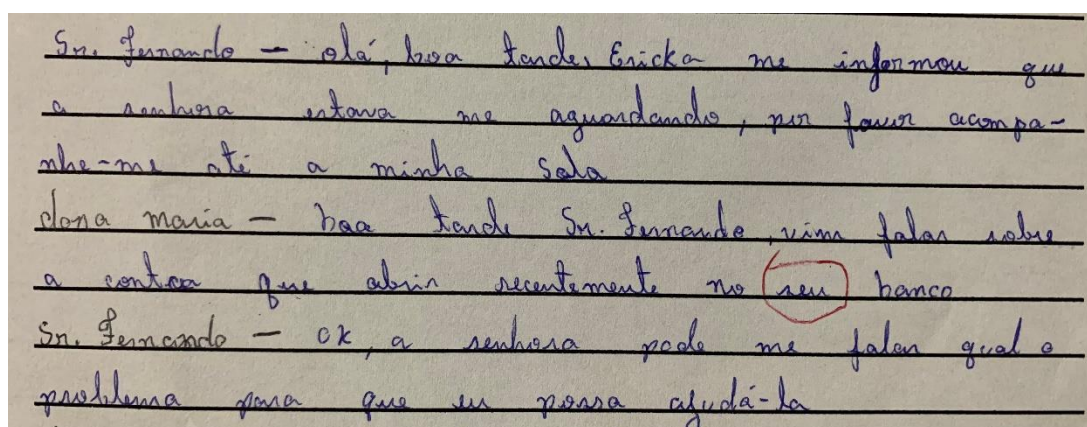 Sr. Fernando — olá, boa tarde, Ericka me informou que
a senhora estava me aguardando, por favor acompa-
nhe-me até a minha sala
dona maria — boa tarde Sr. Fernando, vim falar sobre
a conta que abrir recentemente no seu banco
Sr. Fernando — ok, a senhora pode me falar qual o
problema para que eu possa ajudá-la